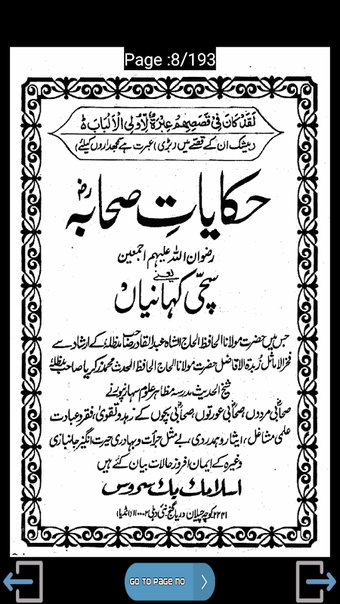 Page :8/193
لَقَدْ كَانَ فِيْ قَصَصِهِمْ عِبْرَةٌ لِّاُولِى الْاَلْبَابِ ۃ
(بیشک ان کے قصے میں (بڑی) عبرت ہے سمجھداروں کیلئے)
حکایاتِ صحابہ رضؓ
رضوان اللہ علیہم اجمعین
یعنے
سچّی کہانیاں
جس میں حضرت مولانا الحافظ الحاج الشاہ عبدالقادر صاحب مدظلہٗ کے ارشاد سے
فخر الاماثل زبدۃ الافاضل حضرت مولانا الحاج الحافظ المحدث محمد زکریا صاحب مدظلہٗ
شیخ الحدیث مدرسہ مظاہر علوم سہارنپور نے
صحابی مردوں، صحابی عورتوں، صحابی بچوں کے زہد و تقویٰ، فقر و عبادت
علمی مشاغل، ایثار و ہمدردی، بے مثل جرأت و بہادری حیرت انگیز جانبازی
وغیرہ کے ایمان افروز حالات بیان کئے ہیں
اسلامک بک سروس
۲۲۴۱ کوچہ چیلان دریا گنج نئی دہلی ۱۱۰۰۰۲ (انڈیا)
GO TO PAGE NO